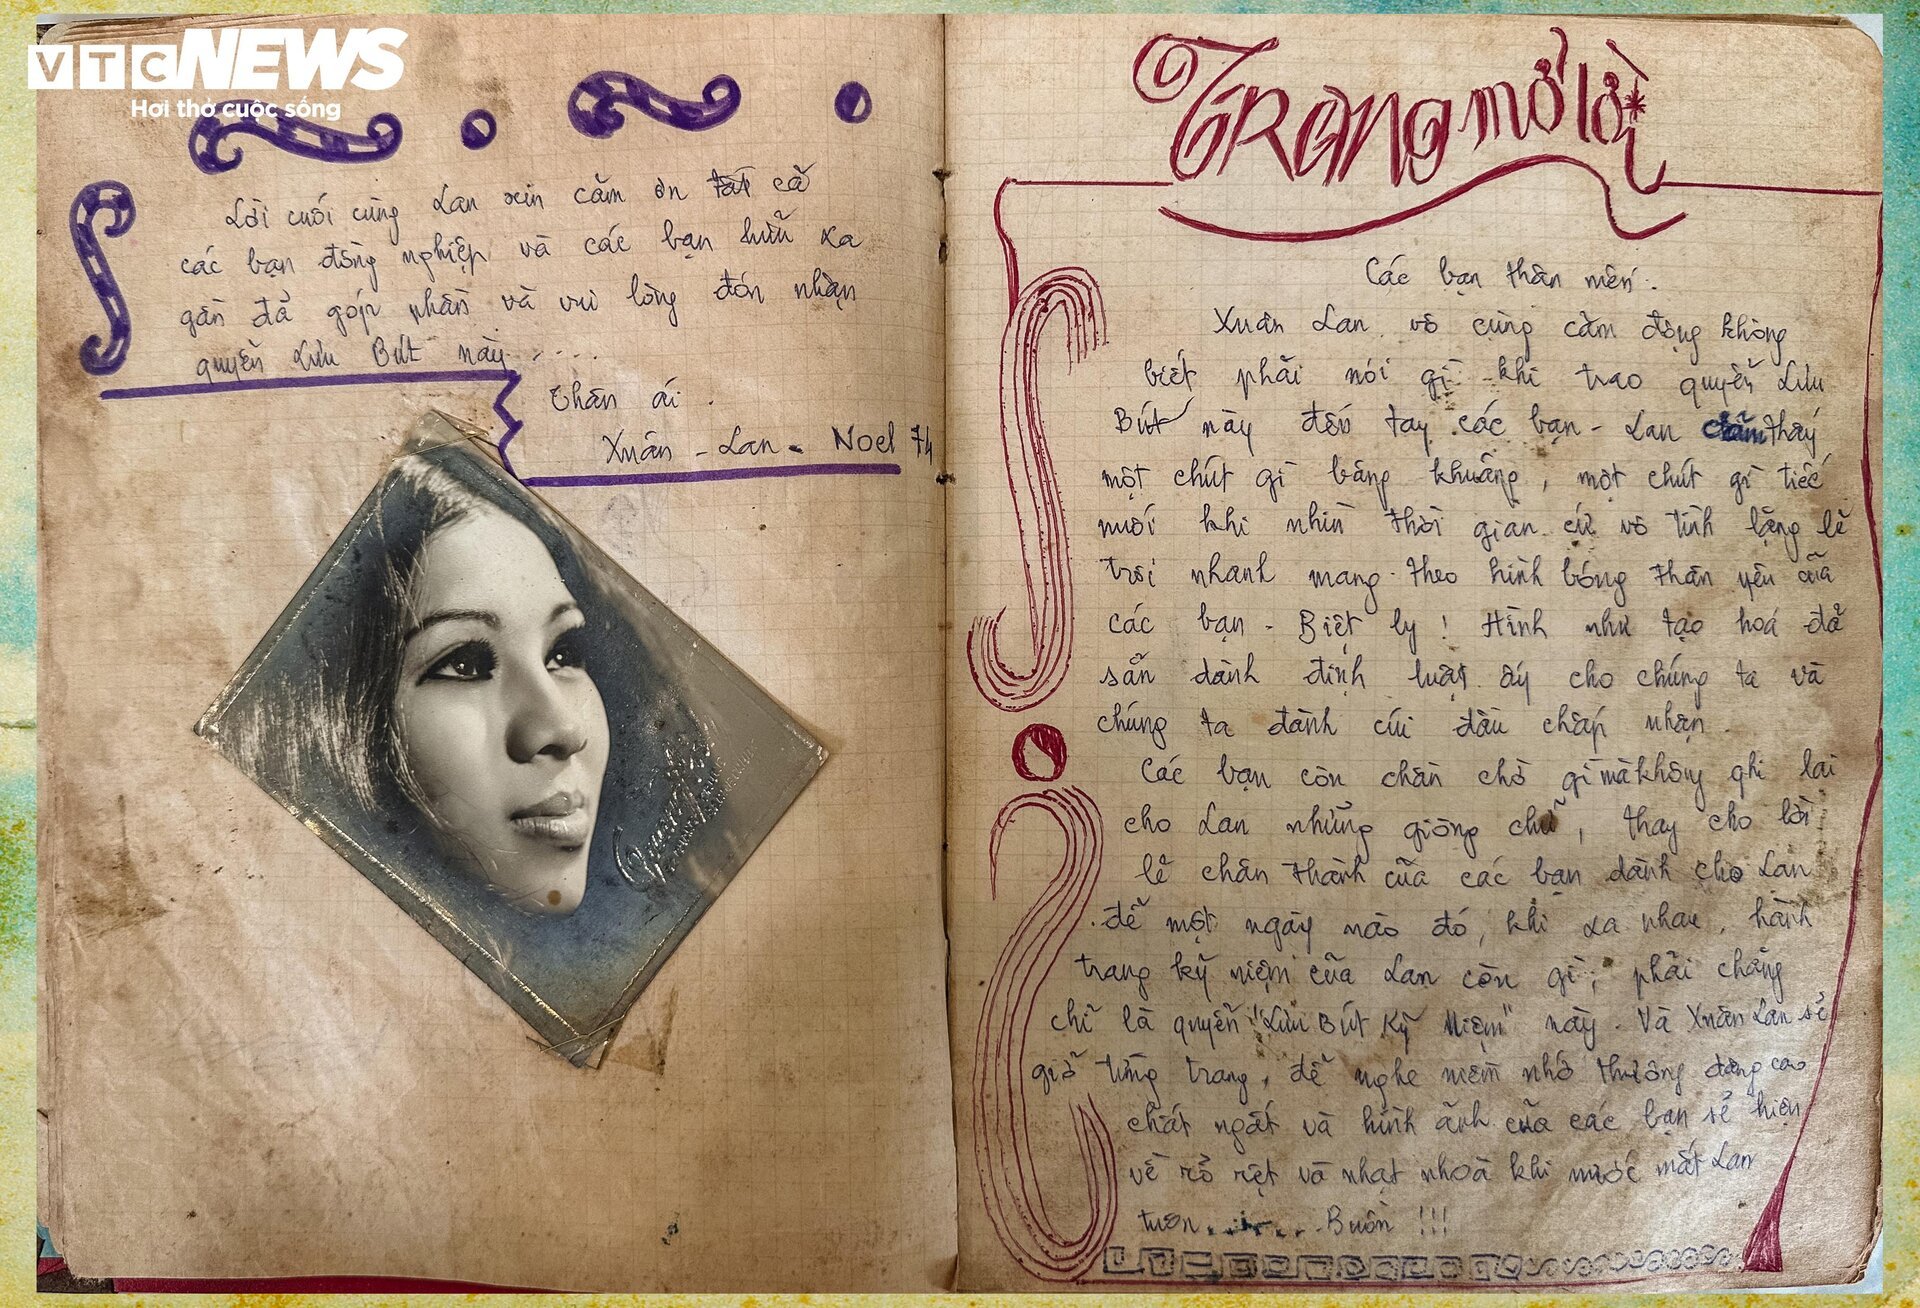 VTC NEWS
Hơi thở cuộc sống
Lời cuối cùng Lan xin cãm ơn tất cã
các bạn đồng nghiệp và các bạn hữu xa
gần đả góp phần và vui lòng đón nhận
quyển Lưu Bút này . . . . .
Thân ái .
Xuân - Lan - Noel 74
TRANG mở lời
Các bạn thân mến .
Xuân Lan vô cùng cãm động không
biết phãi nói gì khi trao quyễn Lưu
Bút này đến tay các bạn - Lan cãm thấy
một chút gì bâng khuâng , một chút gì tiếc
nuối khi nhìn thời gian cứ vô tình lặng lẽ
trôi nhanh mang theo hình bóng thân yêu cũa
các bạn - Biệt ly ! Hình như tạo hoá đả
sẵn dành định luật ấy cho chúng ta và
chúng ta đành cúi đầu chấp nhận .
Các bạn còn chần chờ gì mà không ghi lại
cho Lan những giòng chữ , thay cho lời
lẽ chân thành cũa các bạn dành cho Lan
để một ngày nào đó , khi xa nhau , hành
trang kỹ niệm cũa Lan còn gì , phải chăng
chĩ là quyễn "Lưu Bút Kỹ Niệm" này . Và Xuân Lan sẽ
giở từng trang , để nghe niềm nhớ thương dâng cao
chất ngất và hình ãnh cũa các bạn sẽ hiện
về rỏ rệt và nhạt nhoà khi nước mắt Lan
tuôn . . . . . . Buồn !!!